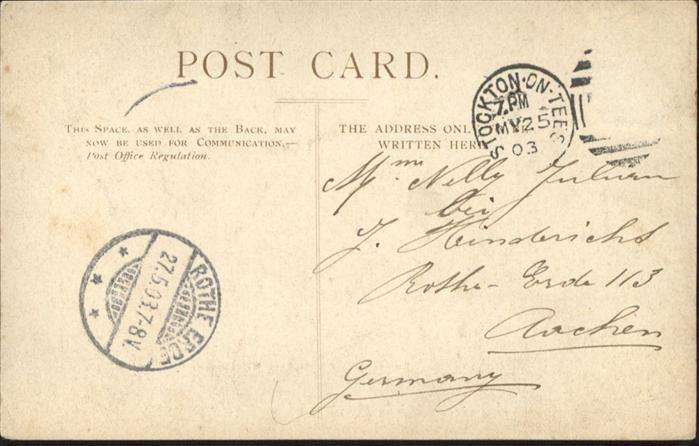 POST CARD.
THIS SPACE, AS WELL AS THE BACK, MAY
NOW BE USED FOR COMMUNICATION,
Post Office Regulation.
THE ADDRESS ONL
WRITTEN HER
STOCKTON-ON-TEES
7. PM
MY 25
03
Mme Nelly Julien
bei
J. Hinderichs
Rothe-Erde 113
Aachen
Germany
ROTHE ERDE
27.5.03.7-8V.